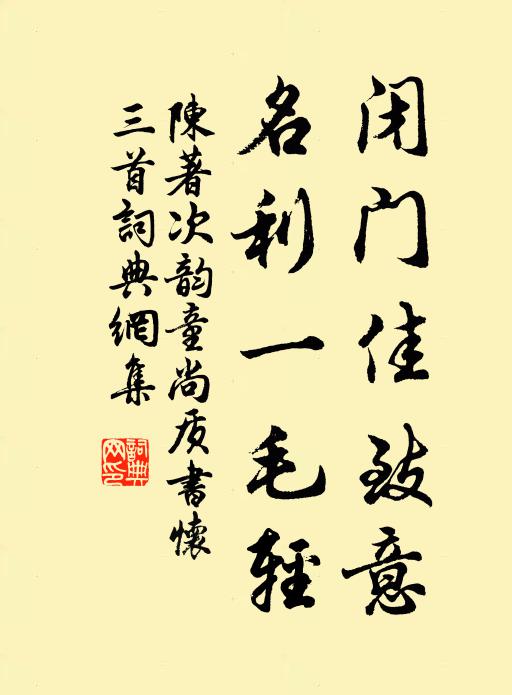 闭门佳致意
名利一毛轻
陳著次韵童尚质書懷
三首詞典網集
詞典
网印